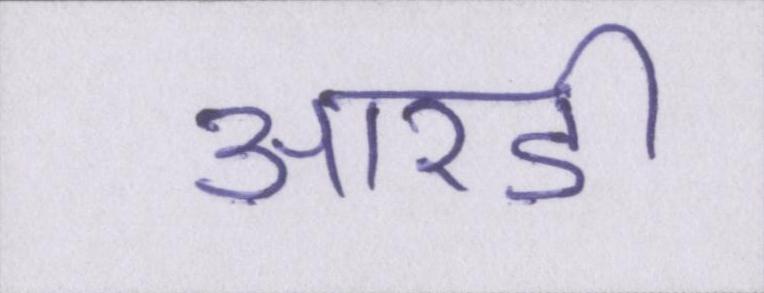 आरडी